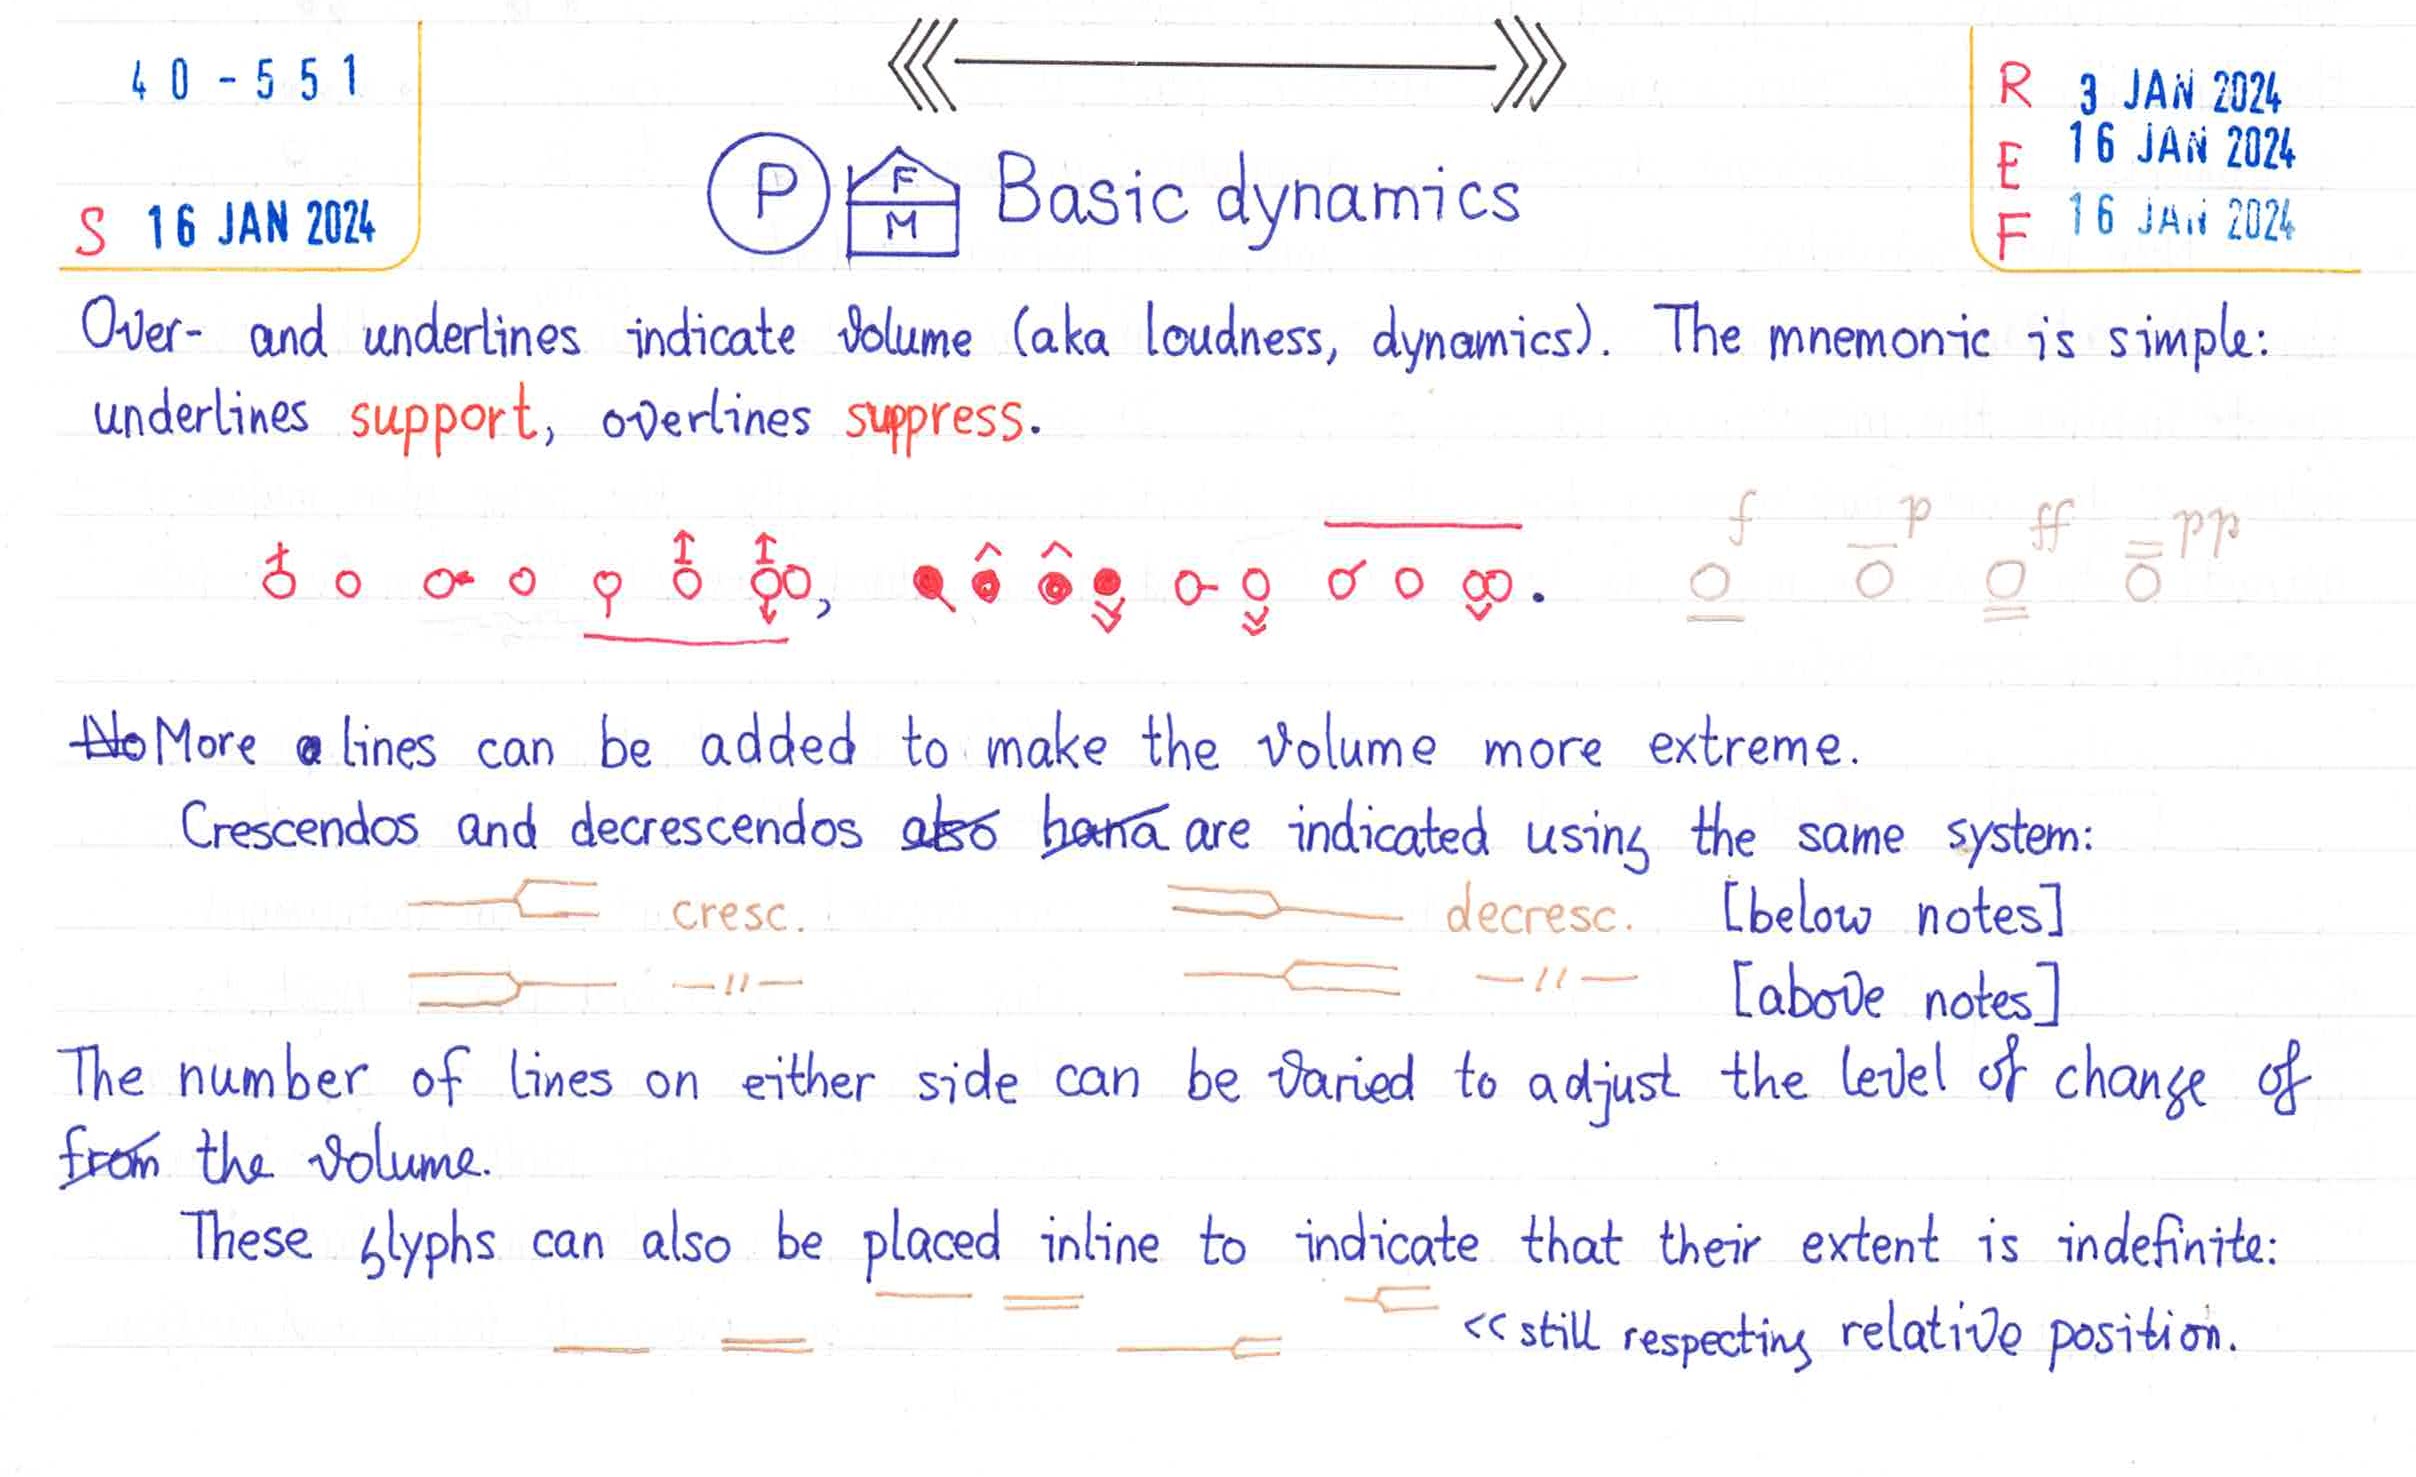 40-551
S 16 JAN 2024
R 3 JAN 2024
E 16 JAN 2024
F 16 JAN 2024
P F M Basic dynamics
Over- and underlines indicate volume (aka loudness, dynamics). The mnemonic is simple:
underlines support, overlines suppress.
f p ff pp
No More a lines can be added to make the volume more extreme.
Crescendos and decrescendos also hana are indicated using the same system:
cresc. decresc. [below notes]
—〃— —〃— [above notes]
The number of lines on either side can be varied to adjust the level of change of
from the volume.
These glyphs can also be placed inline to indicate that their extent is indefinite:
<< still respecting relative position.